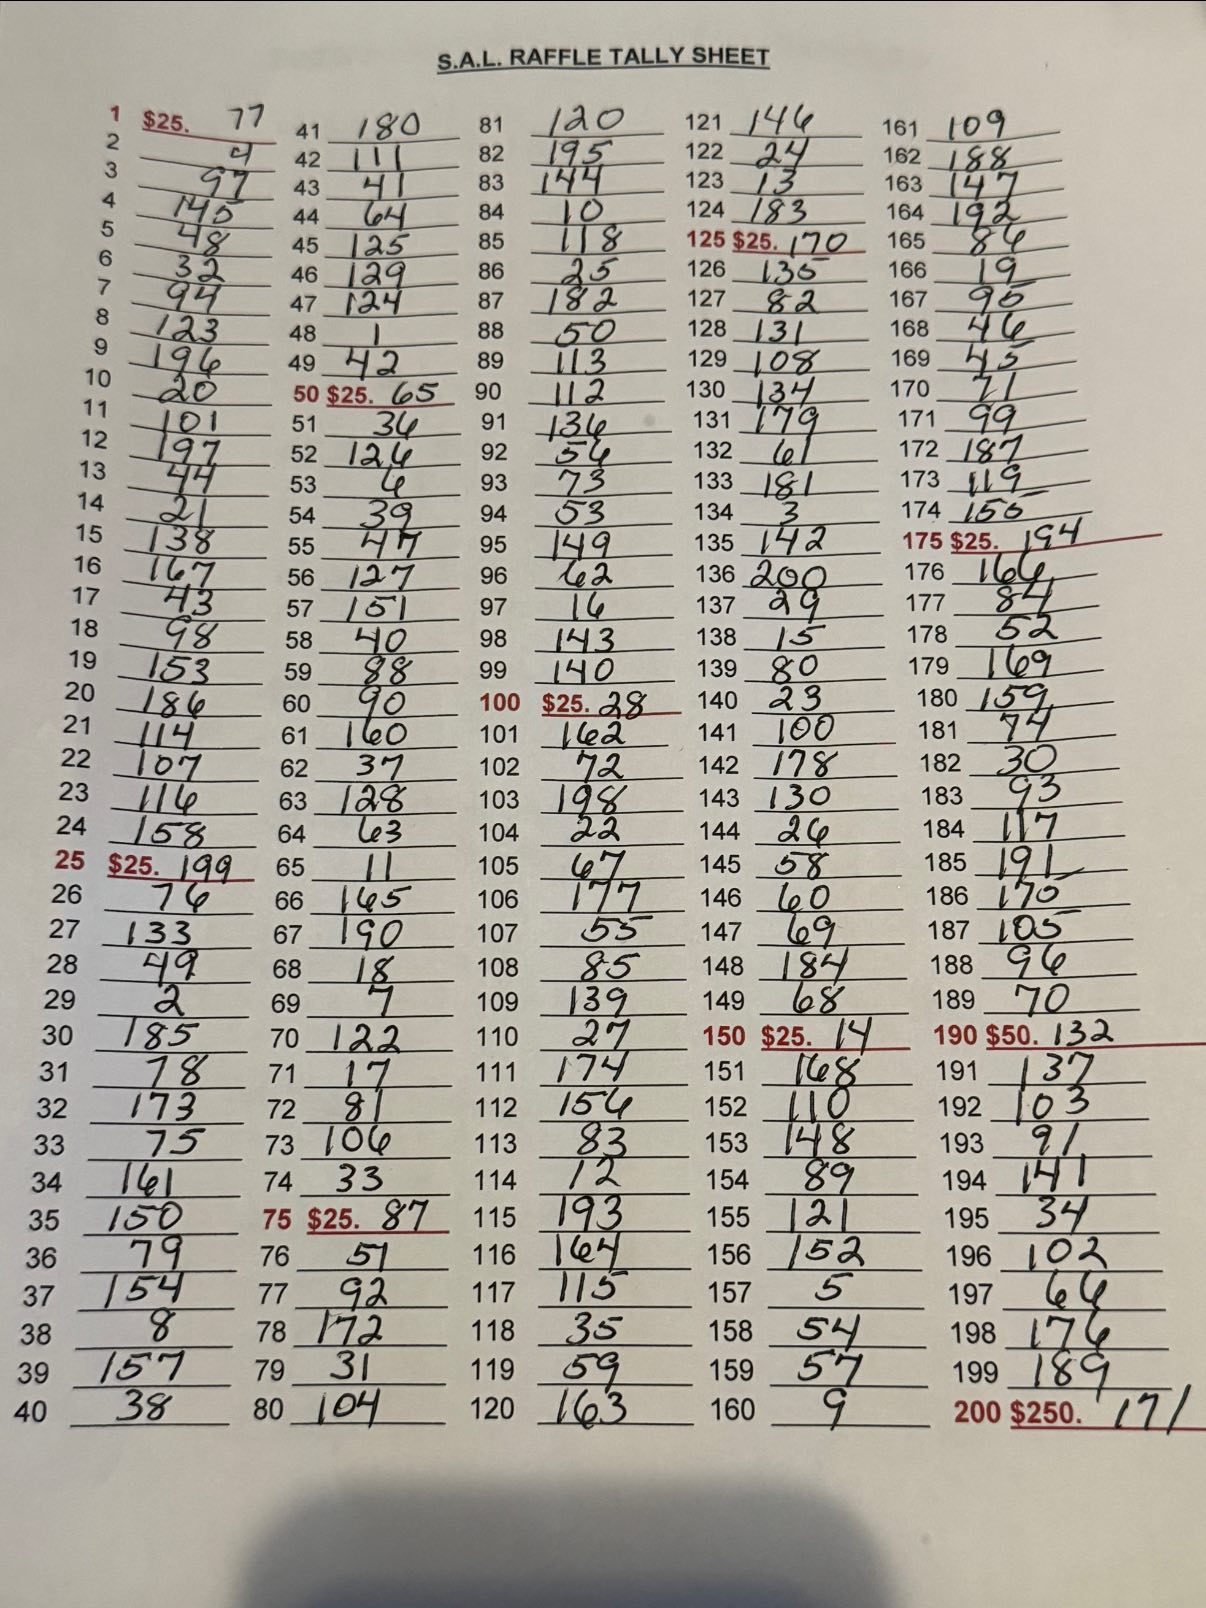 S.A.L. RAFFLE TALLY SHEET
1 $25. 77
2 4
3 97
4 145
5 48
6 32
7 94
8 123
9 196
10 20
11 101
12 197
13 44
14 21
15 138
16 167
17 43
18 98
19 153
20 186
21 114
22 107
23 116
24 158
25 $25. 199
26 76
27 133
28 49
29 2
30 185
31 78
32 173
33 75
34 161
35 150
36 79
37 154
38 8
39 157
40 38
41 180
42 111
43 41
44 64
45 125
46 129
47 124
48 1
49 42
50 $25. 65
51 36
52 126
53 6
54 39
55 47
56 127
57 151
58 40
59 88
60 90
61 160
62 37
63 128
64 63
65 11
66 165
67 190
68 18
69 7
70 122
71 17
72 81
73 106
74 33
75 $25. 87
76 51
77 92
78 172
79 31
80 104
81 120
82 195
83 144
84 10
85 118
86 25
87 182
88 50
89 113
90 112
91 136
92 56
93 73
94 53
95 149
96 62
97 16
98 143
99 140
100 $25. 28
101 162
102 72
103 198
104 22
105 67
106 177
107 55
108 85
109 139
110 27
111 174
112 156
113 83
114 12
115 193
116 164
117 115
118 35
119 59
120 163
121 146
122 24
123 13
124 183
125 $25. 170
126 135
127 82
128 131
129 108
130 134
131 179
132 61
133 181
134 3
135 142
136 200
137 29
138 15
139 80
140 23
141 100
142 178
143 130
144 26
145 58
146 60
147 69
148 184
149 68
150 $25. 14
151 168
152 110
153 148
154 89
155 121
156 152
157 5
158 54
159 57
160 9
161 109
162 188
163 147
164 192
165 86
166 19
167 95
168 46
169 45
170 71
171 99
172 187
173 119
174 155
175 $25. 194
176 166
177 84
178 52
179 169
180 159
181 74
182 30
183 93
184 117
185 191
186 175
187 105
188 96
189 70
190 $50. 132
191 137
192 103
193 91
194 141
195 34
196 102
197 66
198 176
199 189
200 $250. 171